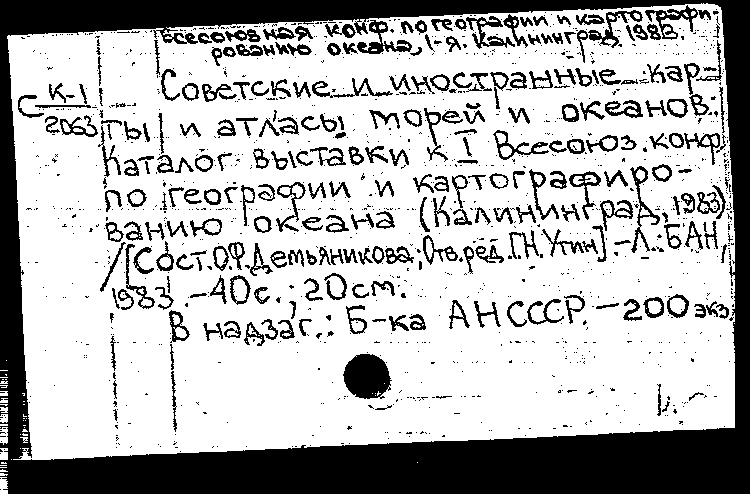 Всесоюзная конф. по географии и картографи-
рованию океана, 1-я. Калининград, 1983.
Советские и иностранные кар-
С К-1
2063
ты и атласы морей и океанов:
Каталог выставки к I Всесоюз. конф.
по географии и картографиро-
ванию океана (Калининград, 1983)
/[Сост. О.Ф. Демьяникова; Отв. ред. Г.Н. Утин]. - Л.: БАН,
1983. - 40 с.; 20 см.
В надзаг.: Б-ка АН СССР. - 200 экз.